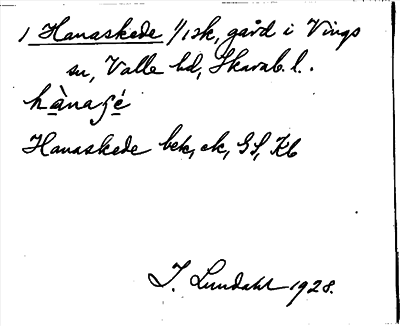 1 Hanaskede 1/1 sk, gård i Vings
sn, Valle hd, Skarab. l.
Hanaskede bek, ek, GS, Kb
I. Lundahl 1928.